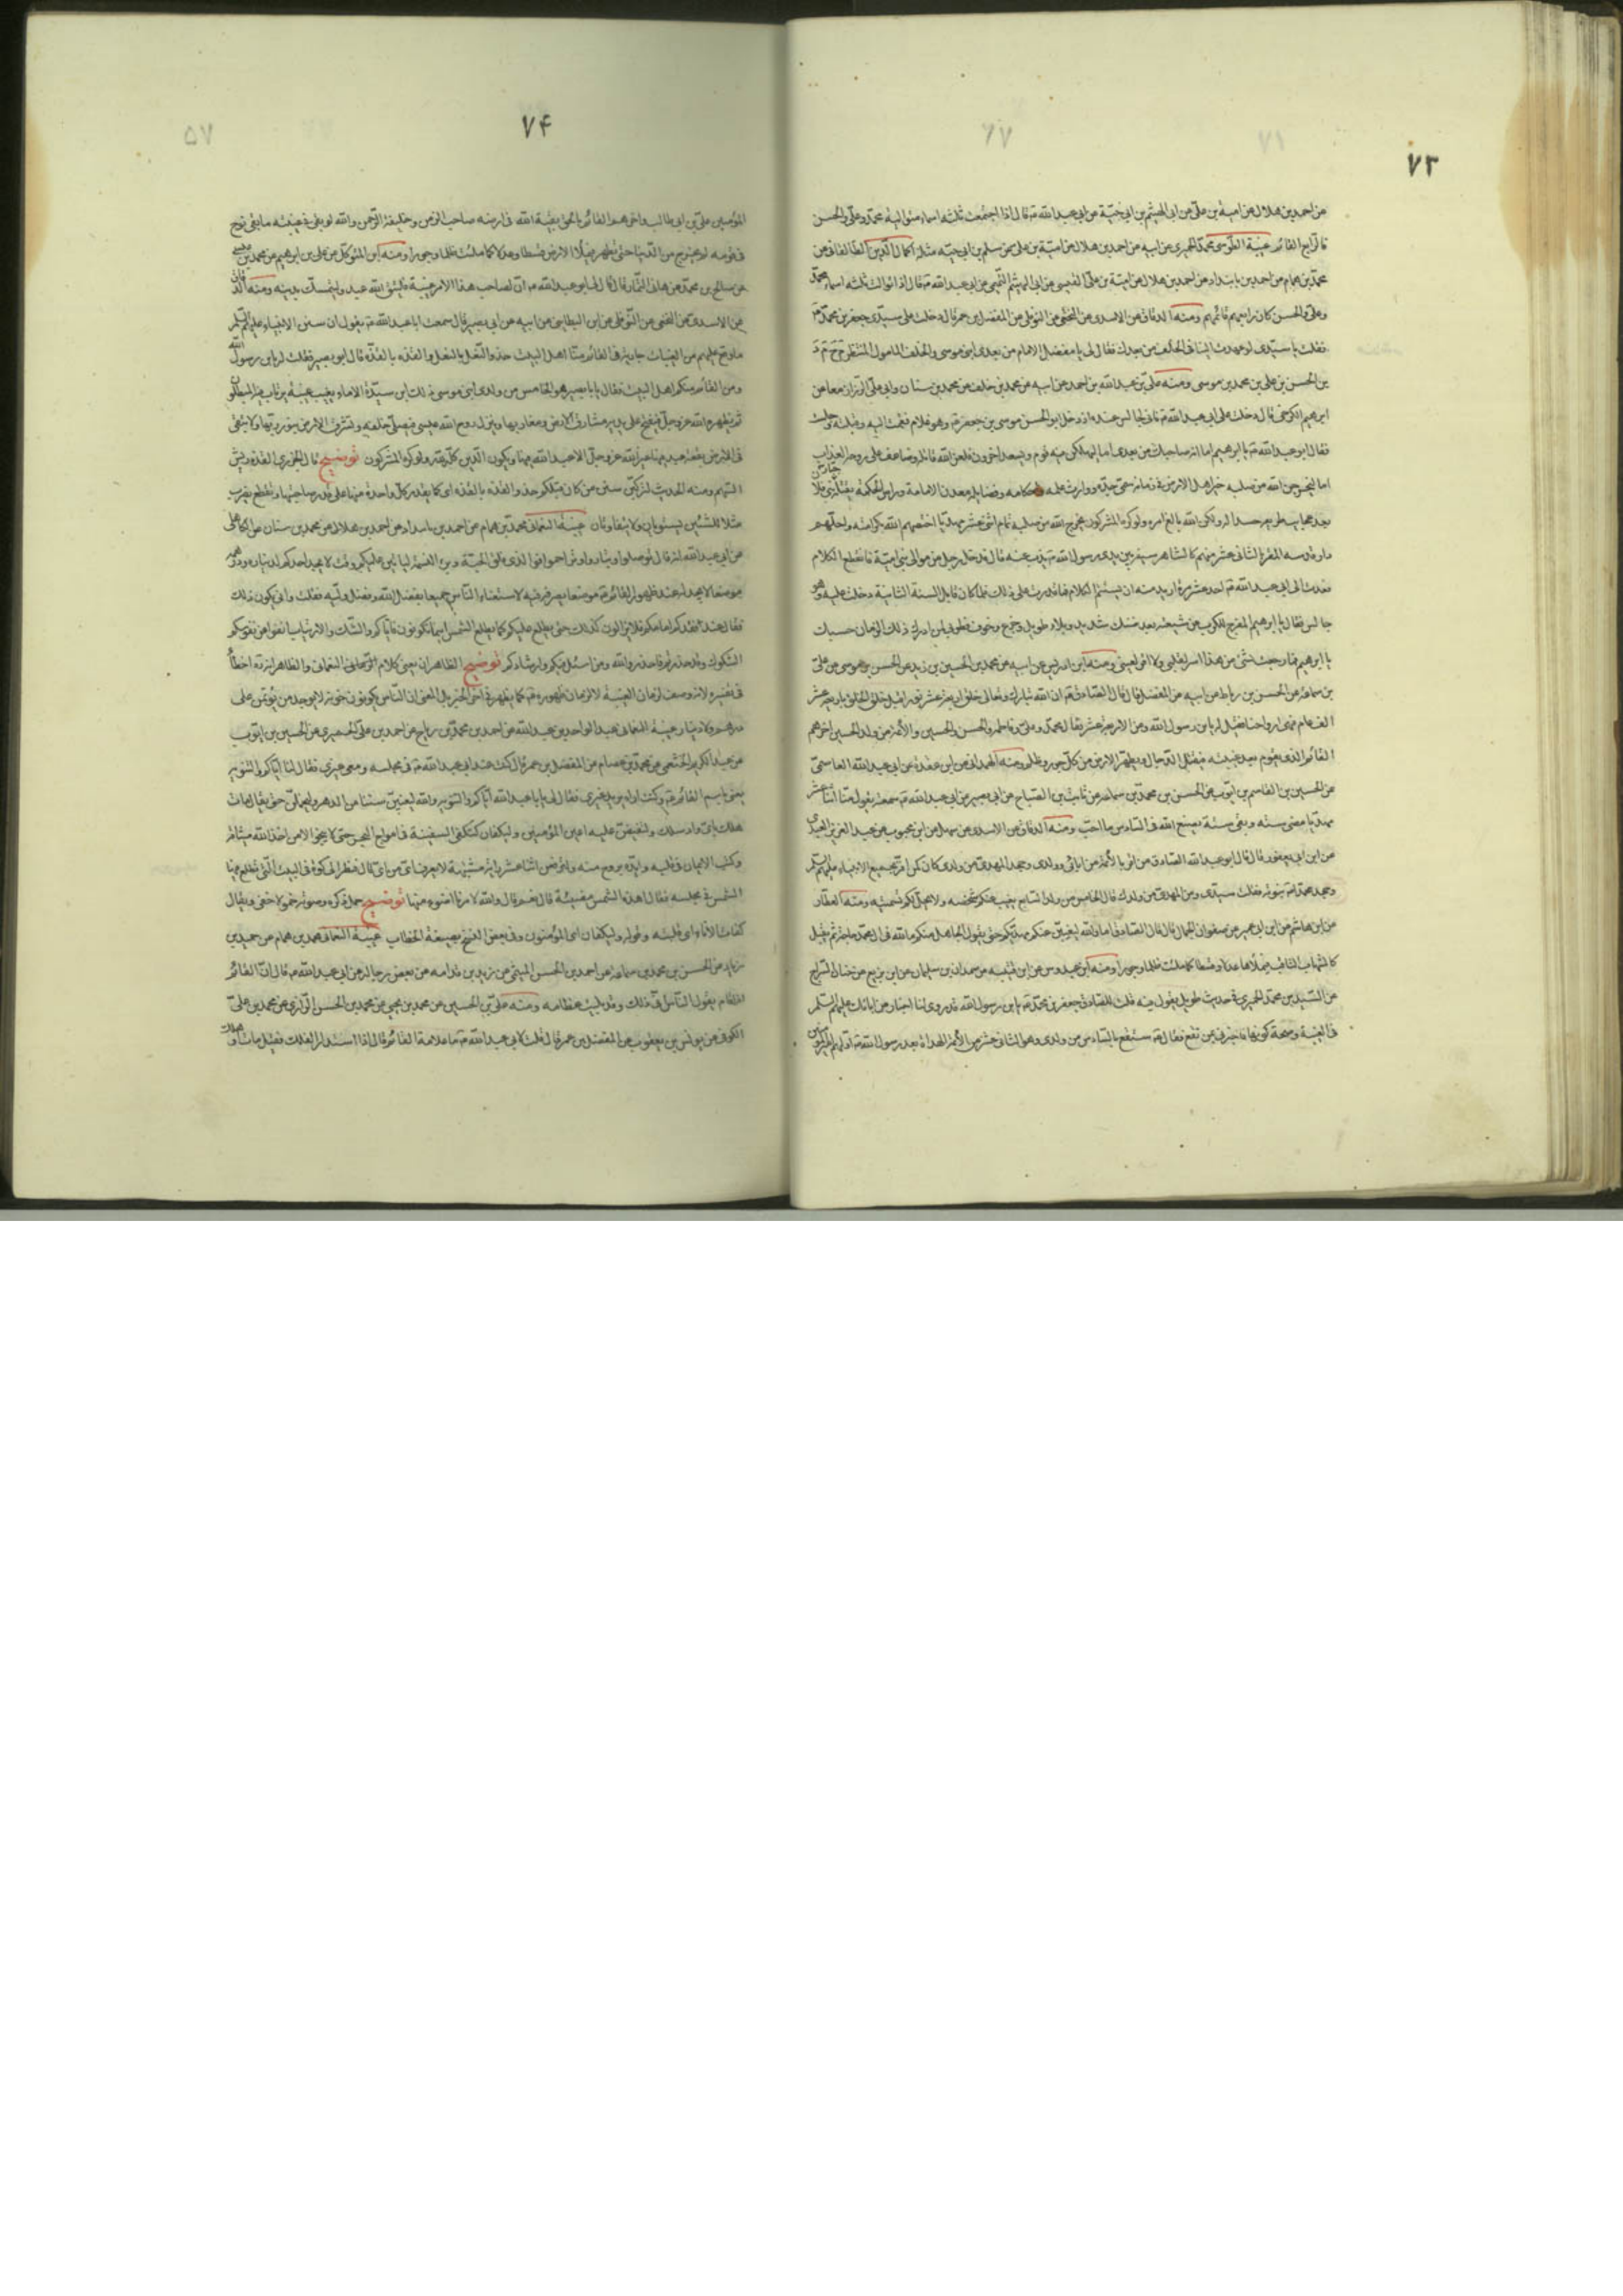 ۷۳
من احمد بن هلال عن امية بن علي عن ابي الهيثم بن ابي حبة عن ابي عبد الله ع قال اذا اجتمعت ثلثة اسماء متوالية محمد وعلي والحسن
فالرابع القائم غيبة الطوسي محمد الحميري عن ابيه عن احمد بن هلال عن امية بن علي عن سلم بن ابي حبة مثله اكمال الدين الطالقاني عن
محمد بن همام عن احمد بن مابنداد عن احمد بن هلال عن امية بن علي القيسي عن ابي الهيثم التميمي عن ابي عبد الله ع قال اذا توالت ثلثة اسماء محمد
وعلي والحسن كان رابعهم قائمهم ومنه الدقاق عن الاسدي عن النخعي عن النوفلي عن المفضل بن عمر قال دخلت على سيدي جعفر بن محمد ع
فقلت يا سيدي لو عهدت الينا في الخلف من بعدك فقال لي يا مفضل الامام من بعدي ابني موسى والخلف المامول المنتظر م ح م د
بن الحسن بن علي بن محمد بن علي بن موسى ومنه علي بن عبد الله بن احمد عن ابيه عن محمد بن خلف عن محمد بن سنان وابي علي الزراد معا عن
ابرهيم الكرخي قال دخلت على ابي عبد الله ع فاني لجالس عنده اذ دخل ابو الحسن موسى بن جعفر ع وهو غلام فقمت اليه وقبلته وجلست
فقال ابو عبد الله ع يا ابرهيم اما انه صاحبك من بعدي اما ليهلكن فيه قوم ويسعد اخرون فلعن الله قاتله وضاعف على روحه العذاب
اما ليخرجن الله من صلبه خير اهل الارض في زمانه سمي جده ووارث علمه واحكامه وقضاياه ومعدن الامامة وراس الحكمة يقتله جبار بني فلان
بعد عجايب طريفة حسدا له ولكن الله بالغ امره ولو كره المشركون يخرج الله من صلبه تمام اثني عشر مهديا اختصهم الله بكرامته واحلهم
دار قدسه المقر بالثاني عشر منهم كالشاهر سيفه بين يدي رسول الله ص يذب عنه قال فدخل رجل من موالي بني امية فانقطع الكلام
فعدت الى ابي عبد الله ع احد عشر مرة اريد منه ان يستتم الكلام فما قدرت على ذلك فلما كان قابل السنة الثانية دخلت عليه وهو
جالس فقال يا ابرهيم المفرج للكرب عن شيعته بعد ضنك شديد وبلاء طويل وجزع وخوف فطوبى لمن ادرك ذلك الزمان حسبك
يا ابرهيم فما رجعت بشئ من هذا اسر لقلبي ولا اقر لعيني ومنه ابن ادريس عن ابيه عن محمد بن الحسين بن زيد عن الحسن بن موسى عن علي
بن سماعة عن الحسن بن رباط عن ابيه عن المفضل قال قال الصادق ع ان الله تبارك وتعالى خلق اربعة عشر نورا قبل خلق الخلق باربعة عشر
الف عام فهي ارواحنا فقيل له يا بن رسول الله ومن الاربعة عشر فقال محمد وعلي وفاطمة والحسن والحسين والائمة من ولد الحسين اخرهم
القائم الذي يقوم بعد غيبته فيقتل الدجال ويطهر الارض من كل جور وظلم ومنه الهمداني عن ابن عقدة عن ابي عبد الله العاصمي
عن الحسين بن القاسم بن ايوب عن الحسن بن محمد بن سماعة عن ثابت بن الصباح عن ابي بصير عن ابي عبد الله ع سمعته يقول منا اثنا عشر
مهديا مضى ستة وبقي ستة يصنع الله في السادس ما احب ومنه الدقاق عن الاسدي عن سهل عن ابن محبوب عن عبد العزيز العبدي
عن ابن ابي يعفور قال قال ابو عبد الله الصادق من اقر بالائمة من ابائي وولدي وجحد المهدي من ولدي كان كمن اقر بجميع الانبياء عليهم السلم
وجحد محمدا ص نبوته فقلت سيدي ومن المهدي من ولدك قال الخامس من ولد السابع يغيب عنكم شخصه ولا يحل لكم تسميته ومنه العطار
عن ابن هاشم عن ابن ابي عمير عن صفوان الجمال قال قال الصادق اما والله ليغيبن عنكم مهديكم حتى يقول الجاهل منكم ما لله في ال محمد حاجة ثم يقبل
كالشهاب الثاقب فيملاها عدلا وقسطا كما ملئت ظلما وجورا ومنه ابن عبدوس عن ابن قتيبة عن حمدان بن سليمان عن ابن بزيع عن حيان السراج
عن السيد بن محمد الحميري في حديث طويل يقول فيه قلت للصادق جعفر بن محمد ع يا بن رسول الله قد روي لنا اخبار عن ابائك عليهم السلم
في الغيبة وصحة كونها فاخبرني بمن تقع فقال ع ستقع بالسادس من ولدي وهو الثاني عشر من الائمة الهداة بعد رسول الله ص اولهم امير
۷۴
المؤمنين علي بن ابي طالب واخرهم القائم بالحق بقية الله في ارضه صاحب الزمن وخليفة الرحمن والله لو بقي في غيبته ما بقي نوح
في قومه لم يخرج من الدنيا حتى يظهر فيملا الارض قسطا وعدلا كما ملئت ظلما وجورا ومنه ابن المتوكل عن علي بن ابرهيم عن محمد بن عيسى
عن صالح بن محمد عن هاني التمار قال قال لي ابو عبد الله ع ان لصاحب هذا الامر غيبة فليتق الله عبد وليتمسك بدينه ومنه الدقاق
عن الاسدي عن النخعي عن النوفلي عن ابن البطايني عن ابيه عن ابي بصير قال سمعت ابا عبد الله ع يقول ان سنن الانبياء عليهم السلم
ما وقع عليهم من الغيبات جارية في القائم منا اهل البيت حذو النعل بالنعل والقذة بالقذة قال ابو بصير فقلت له يا بن رسول الله
ومن القائم منكم اهل البيت فقال يا با بصير هو الخامس من ولد ابني موسى ذلك ابن سيدة الاماء يغيب غيبة يرتاب فيها المبطلون
ثم يظهره الله عز وجل فيفتح على يديه مشارق الارض ومغاربها وينزل روح الله عيسى فيصلي خلفه وتشرق الارض بنور ربها ولا تبقى
في الارض بقعة عبد فيها غير الله عز وجل الا عبد الله فيها ويكون الدين كله لله ولو كره المشركون توضيح قال الجزري القذة ريش
السهم ومنه الحديث لتركبن سنن من كان قبلكم حذو القذة بالقذة اي كما يقدر كل واحدة منها على قدر صاحبتها وتقطع يضرب
مثلا للشيئين يستويان ولا يتفاوتان غيبة النعماني محمد بن همام عن احمد بن مابنداد عن احمد بن هلال عن محمد بن سنان عن الكاهلي
عن ابي عبد الله انه قال تواصلوا وتباروا وتراحموا فوالذي فلق الحبة وبرئ النسمة لياتين عليكم وقت لا يجد احدكم لديناره ودرهمه
موضعا لا يجد له عند ظهور القائم ع موضعا يصرفه فيه لاستغناء الناس جميعا بفضل الله وفضل وليه فقلت وانى يكون ذلك
فقال عند فقدكم امامكم فلا تزالون كذلك حتى يطلع عليكم كما يطلع الشمس ايسما تكونون فاياكم والشك والارتياب انفوا عن نفوسكم
الشكوك وقد حذرتم فاحذروا الله ومن اسئل توفيقكم وارشادكم توضيح الظاهر ان يعني كلام النعماني والظاهر انه ره اخطا
في تفسيره لانه وصف لزمان الغيبة لا لزمان ظهوره ع كما يظهر من اخر الخبر بل المعنى ان الناس يكونون خونة لا يوجد من يؤتمن على
درهم ولا دينار غيبة النعماني عبد الواحد بن عبد الله عن احمد بن محمد بن رباح عن احمد بن علي الحميري عن الحسين بن ايوب
عن عبد الكريم الخثعمي عن محمد بن عصام عن المفضل بن عمر قال كنت عند ابي عبد الله ع في مجلسه ومعي غيري فقال لنا اياكم والتنويه
يعني باسم القائم ع وكنت اراه يريد غيري فقال لي يا با عبد الله اياكم والتنويه والله ليغيبن سنينا من الدهر وليخملن حتى يقال مات
هلك باي واد سلك ولتفيضن عليه اعين المؤمنين وليكفأن كتكفئ السفينة في امواج البحر حتى لا ينجو الا من اخذ الله ميثاقه
وكتب الايمان في قلبه وايده بروح منه ولترفعن اثنا عشر راية مشتبهة لا يعرف اي من اي قال فنظر الى كوة في البيت التي تطلع فيها
الشمس في مجلسه فقال اهذه الشمس مضيئة قال نعم قال والله لامرنا اضوء منها توضيح خمل ذكره وصوته خمولا خفي ويقال
كفات الاناء اي قلبته وقوله وليكفان اي المؤمنون وفي بعض النسخ بصيغة الخطاب غيبة النعماني محمد بن همام عن حميد بن
زياد عن الحسن بن محمد بن سماعة عن احمد بن الحسن الميثمي عن زيد بن قدامة عن بعض رجاله عن ابي عبد الله ع قال ان القائم
اذا قام يقول الناس انى ذلك وقد بليت عظامه ومنه علي بن الحسين عن محمد بن يحيى عن محمد بن الحسن الرازي عن محمد بن علي
الكوفي عن يونس بن يعقوب عن المفضل بن عمر قال قلت لابي عبد الله ع ما علامة القائم قال اذا استدار الفلك فقيل مات او هلك